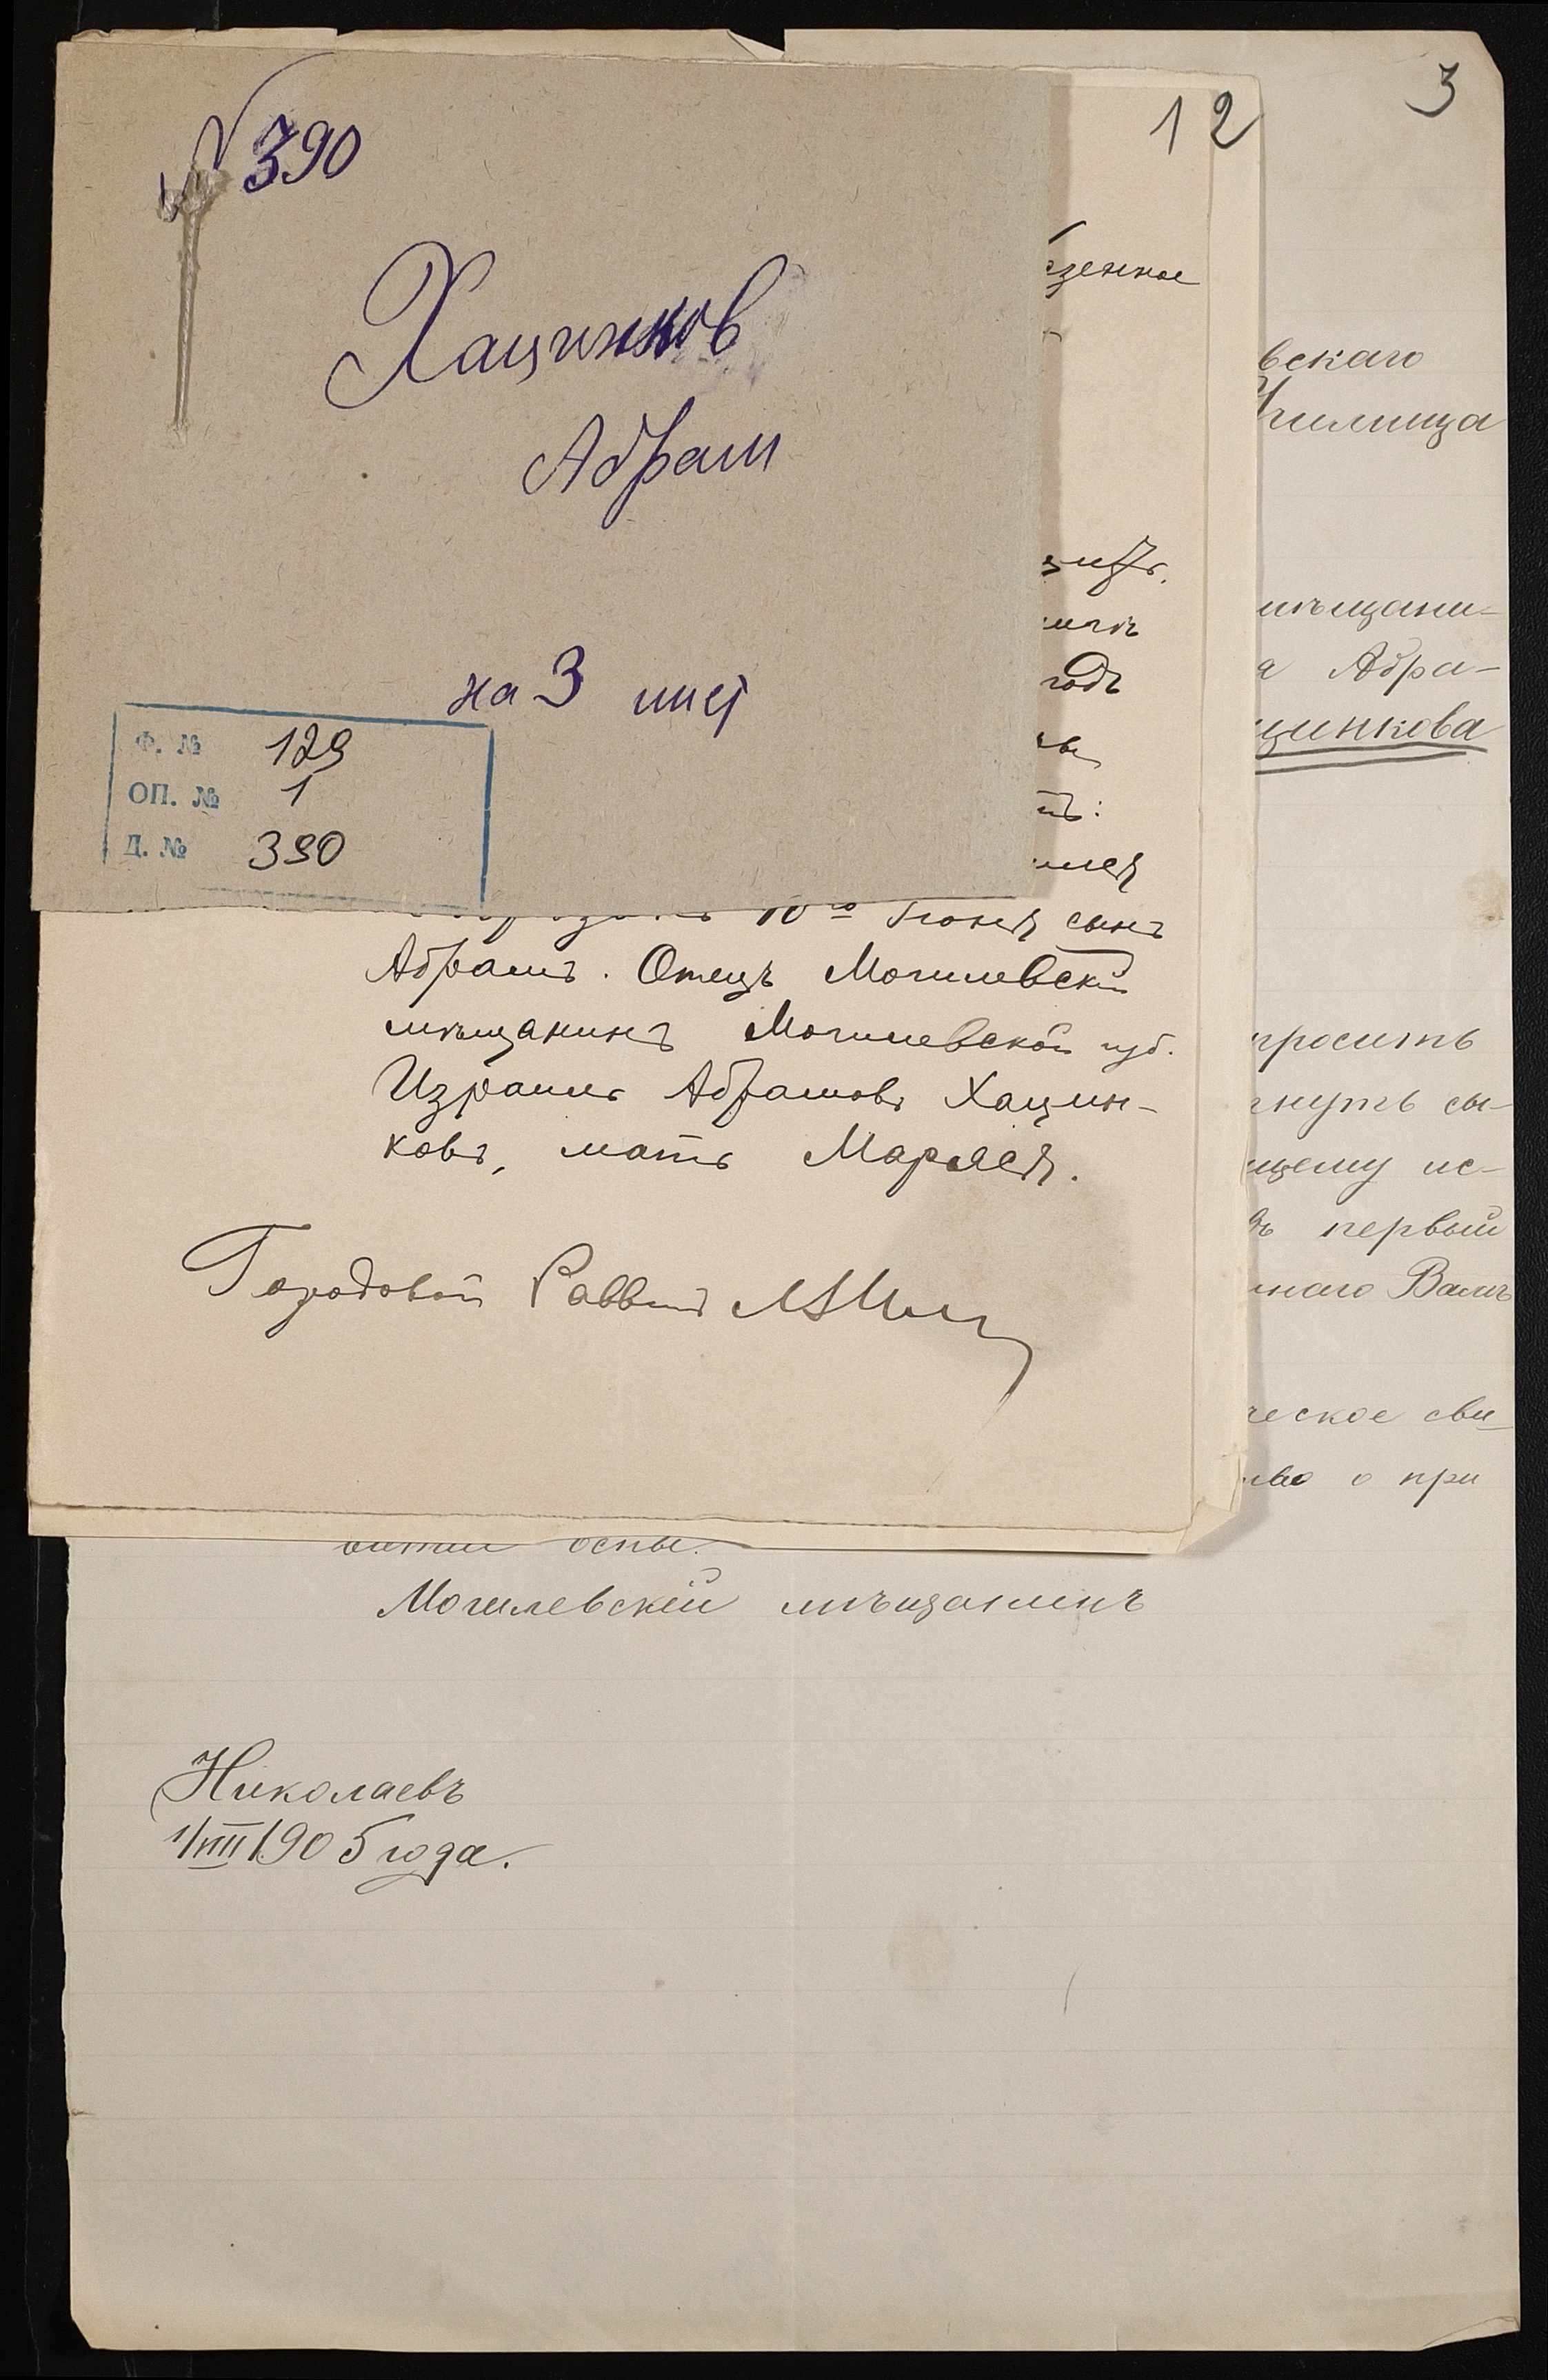 № 390
Хацинков
Абрам
на 3 лист
Ф. № 129
ОП. № 1
Д. № 390
12
10го Іюня сынъ
Абрамъ. Отецъ Могилевскій
мѣщанинъ Могилевской губ.
Израиль Абрамовъ Хацин-
ковъ, мать
Городовой Раввинъ
3
вскаго
Училища
мѣщани-
а Абра-
цинкова
просить
гнуть сы-
щему ис-
въ первый
Вамъ
ческое сви-
о при
оспы.
Могилевскій мѣщанинъ
Николаевъ
1/VIII 1905 года.